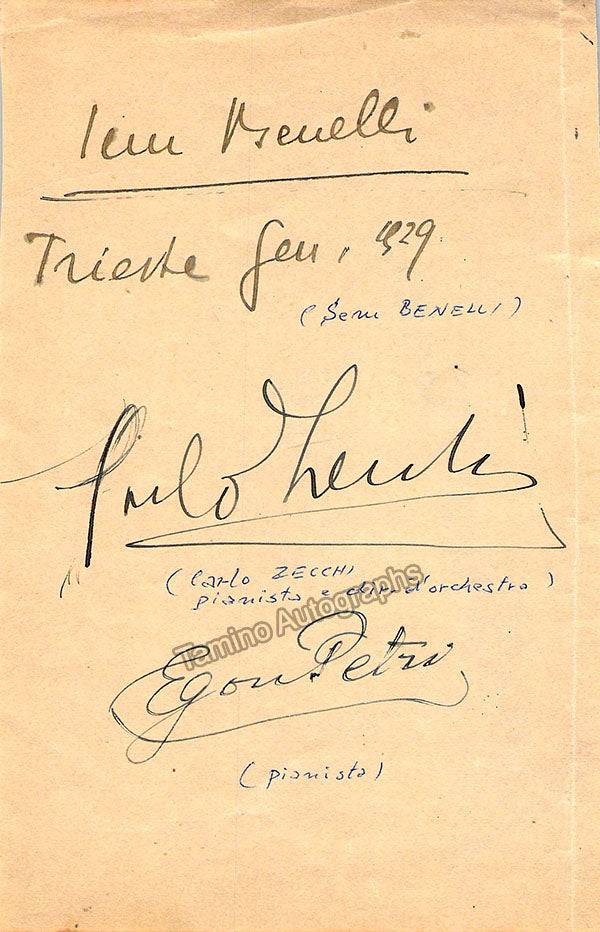 Sem Benelli
Trieste Gen. 1929
(Sem BENELLI)
Carlo Zecchi
(Carlo ZECCHI
pianista e dir. d'orchestra)
Tamino Autographs
Egon Petri
(pianista)